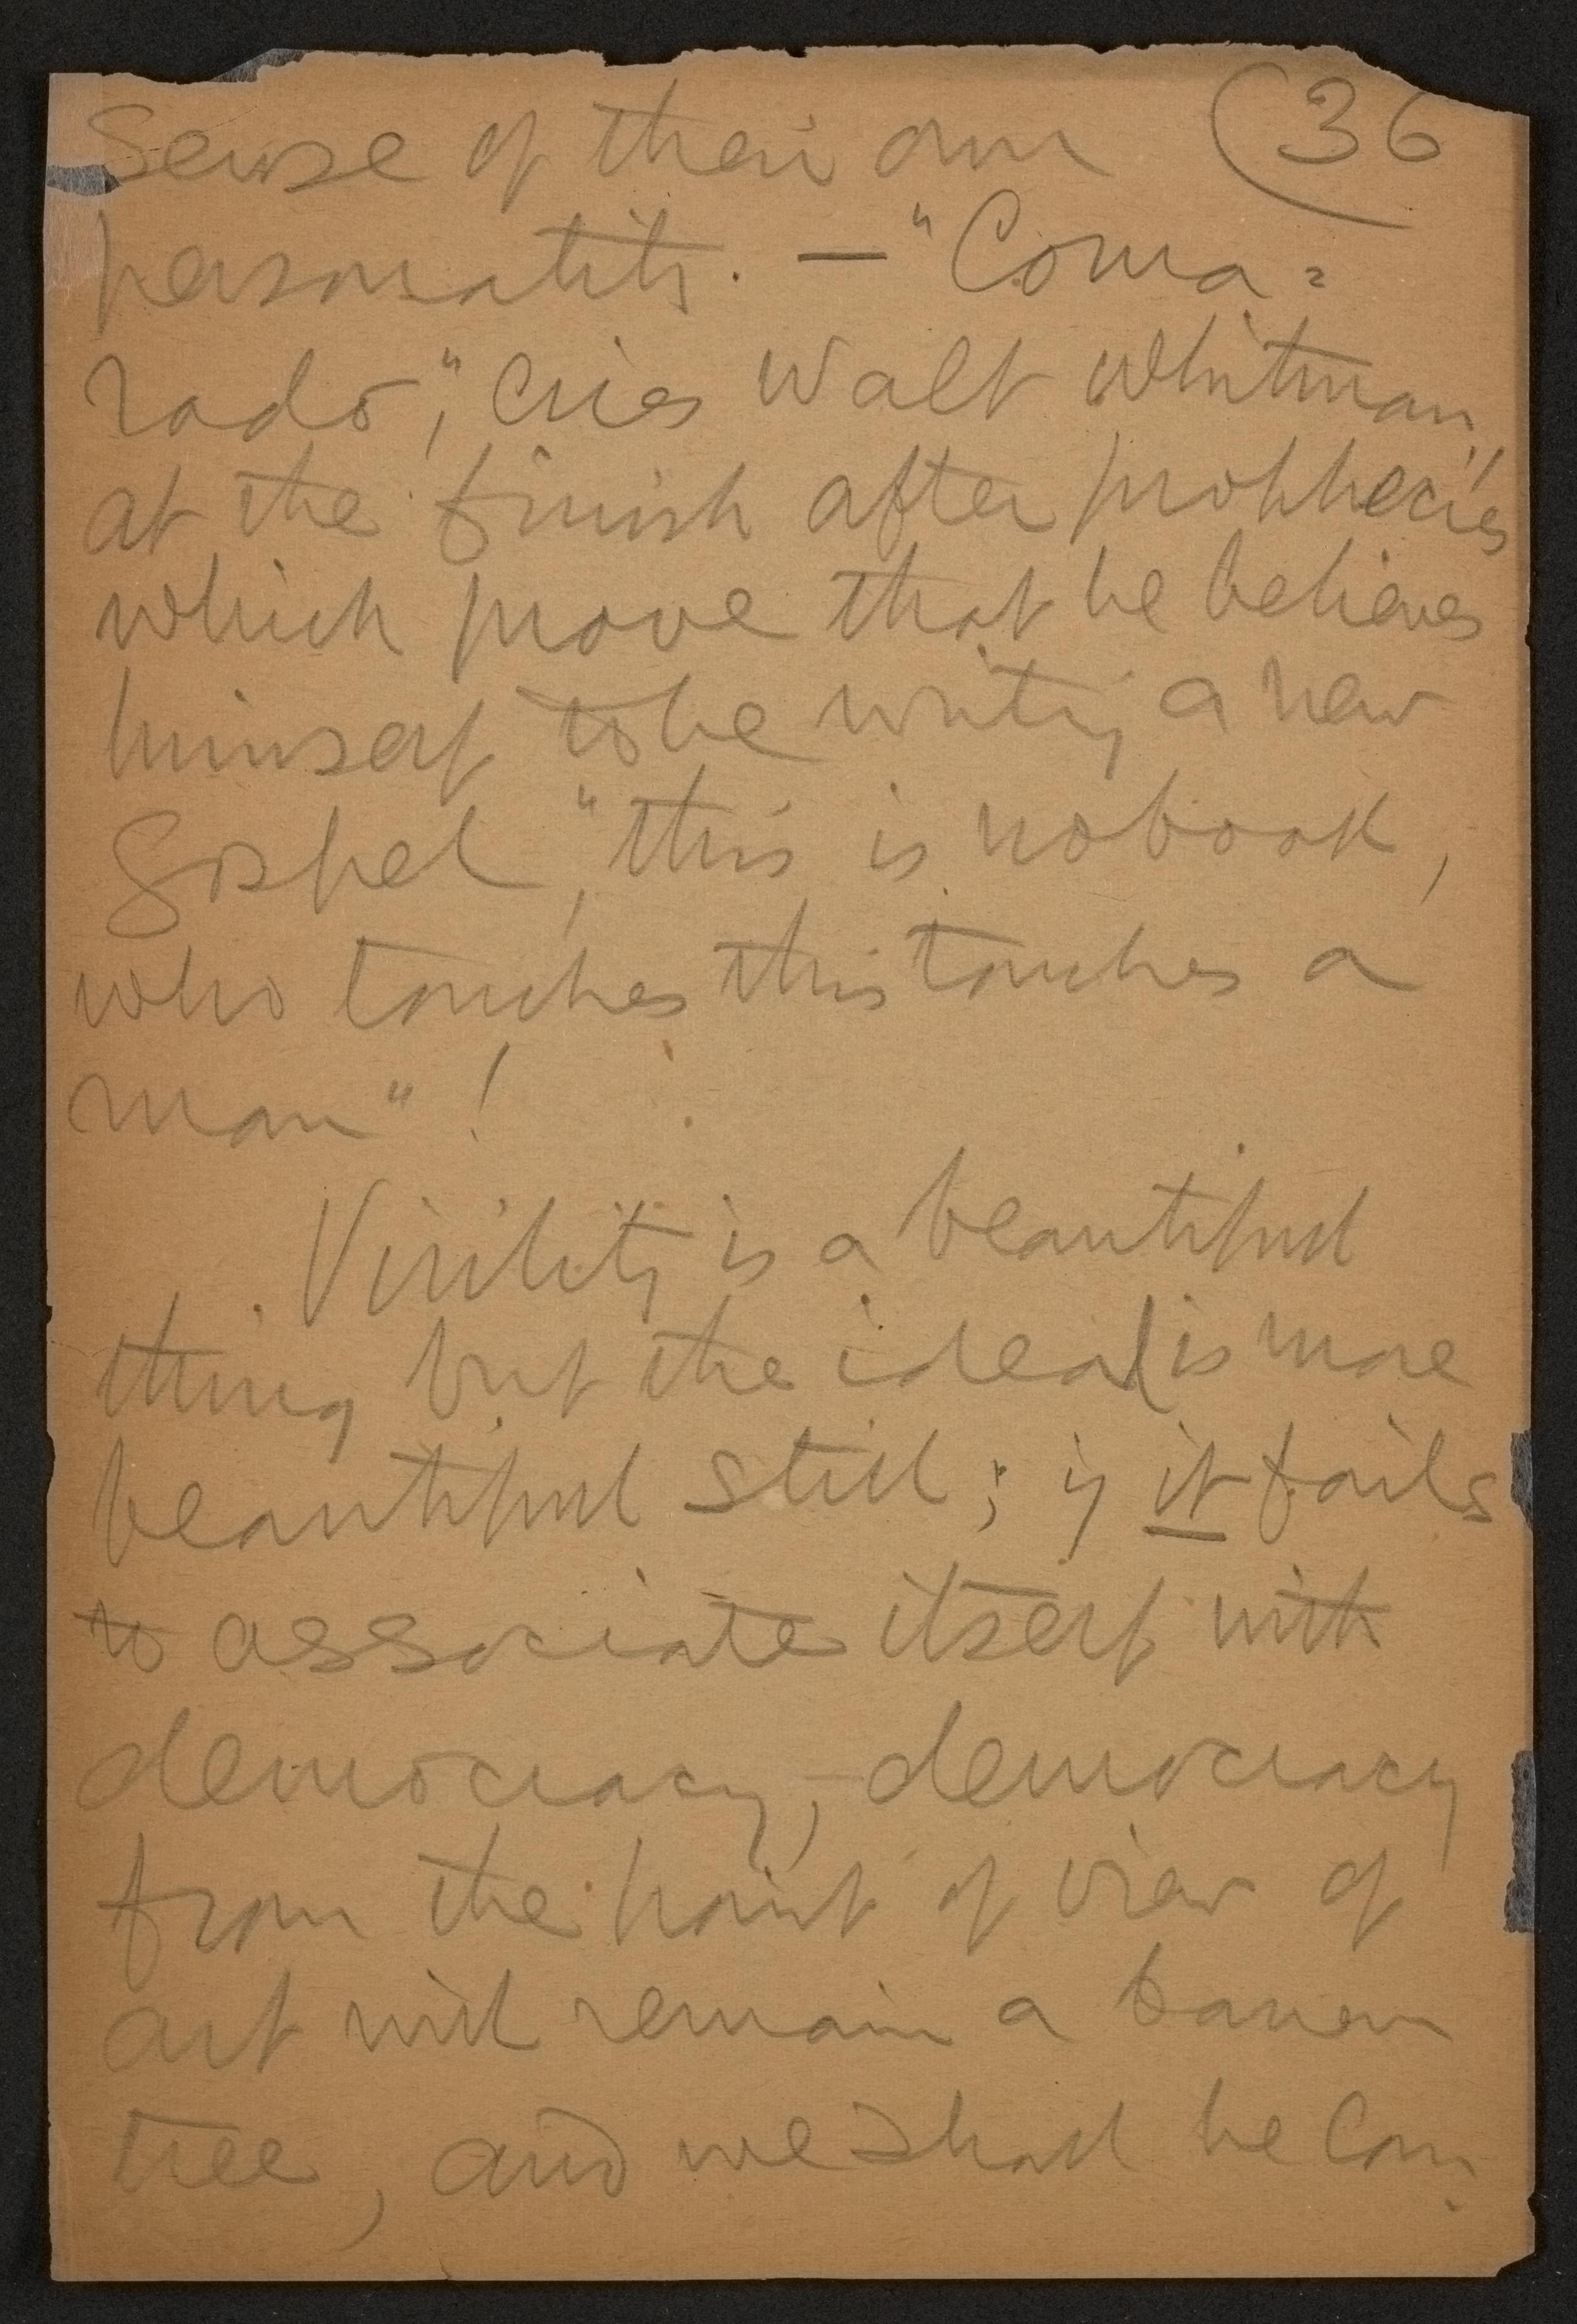 Sense of their own (36
personality. — "Coma=
rado", cries Walt Whitman,
at the finish after prophecies
which prove that he believes
himself to be writing a new
Gospel, "this is no book,
who touches this touches a
man"!
Virility is a beautiful
thing but the ideal is more
beautiful still; if it fails
to associate itself with
democracy, – democracy
from the point of view of
art will remain a barren
tree, and we shall be com-